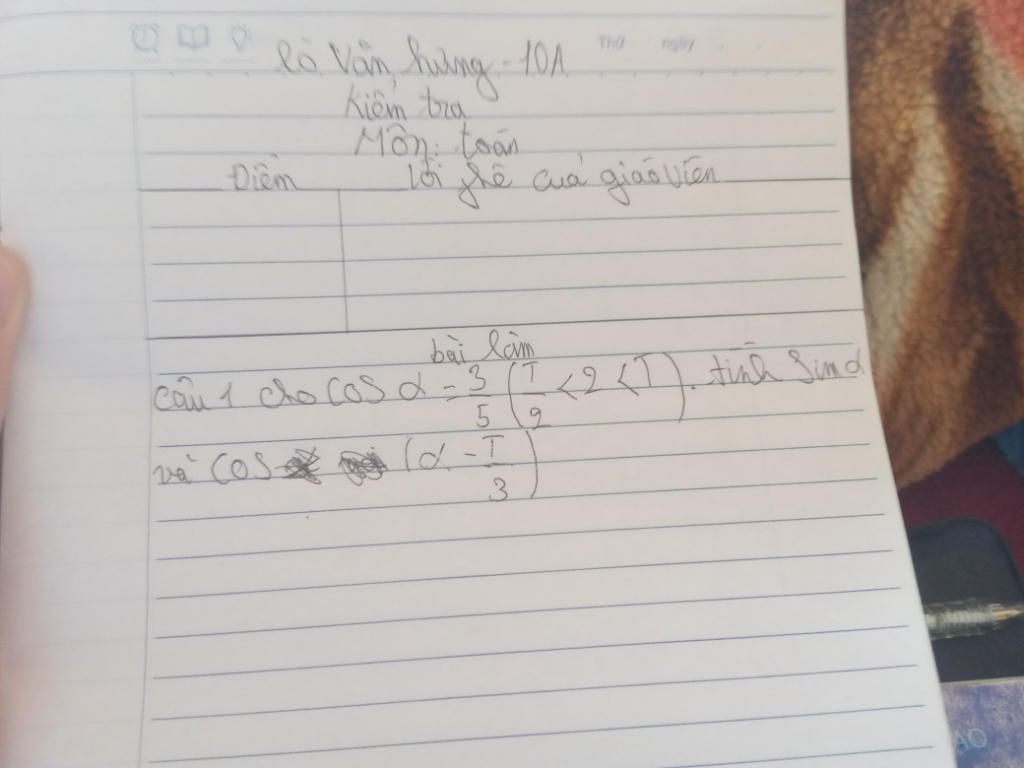 Thứ ngày
Lò Văn Hưng - 10A
Kiểm tra
Môn: toán
Điểm lời phê của giáo viên
bài làm
câu 1 cho cos α = 3/5 (T/2 < 2 < T). tính Sin α
và cos (α - T/3)
AO